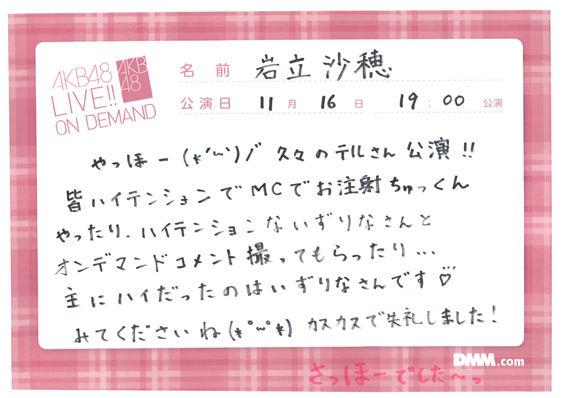 AKB48
LIVE!!
ON DEMAND
AKB
48
名 前 岩立沙穂
公演日 11月 16日 19:00 公演
やっほー(*'~')ﾉﾞ 久々のテルさん公演!!
皆ハイテンションでMCでお注射ちゅっくん
やったり、ハイテンションないずりなさんと
オンデマンドコメント撮ってもらったり…
主にハイだったのはいずりなさんです♡
みてくださいね(*°~°*) カスカスで失礼しました!
DMM.com
さっほーでした〜っ